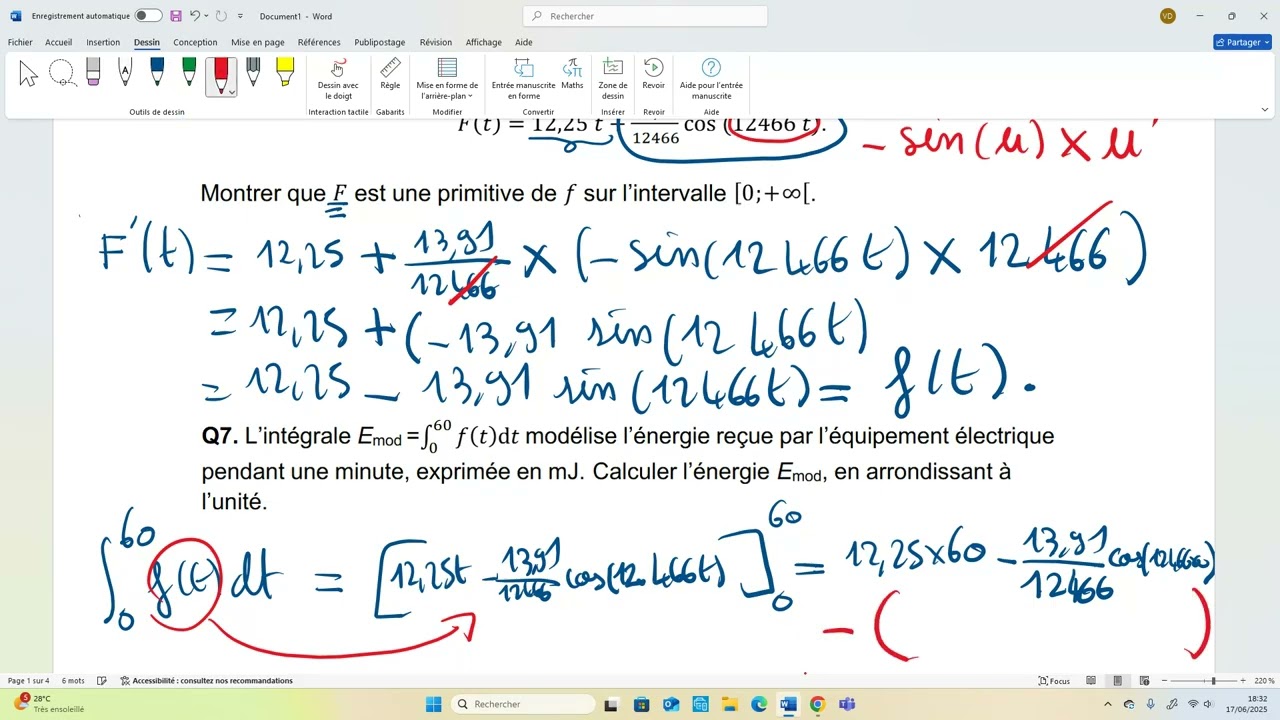 Enregistrement automatique
Document1 - Word
Rechercher
VD
Fichier Accueil Insertion Dessin Conception Mise en page Références Publipostage Révision Affichage Aide
Partager
Dessin avec le doigt
Règle
Mise en forme de l'arrière-plan
Entrée manuscrite en forme
Maths
Zone de dessin
Revoir
Aide pour l'entrée manuscrite
Outils de dessin
Interaction tactile
Gabarits
Modifier
Convertir
Insérer
Revoir
Aide
F(t) = 12,25 t + /12466 cos (12466 t).
- sin(u) × u'
Montrer que F est une primitive de f sur l'intervalle [0;+∞[.
F'(t) = 12,25 + 13,91/12466 × (- sin(12466t) × 12466)
= 12,25 + (-13,91 sin(12466t)
= 12,25 - 13,91 sin(12466t) = f(t).
Q7. L'intégrale Emod =∫₀⁶⁰ f(t)dt modélise l'énergie reçue par l'équipement électrique
pendant une minute, exprimée en mJ. Calculer l'énergie Emod, en arrondissant à
l'unité.
∫₀⁶⁰ f(t) dt = [12,25t - 13,91/12466 cos(12.466t)]₀⁶⁰ = 12,25×60 - 13,91/12466
- ( )
Page 1 sur 4
6 mots
Accessibilité : consultez nos recommandations
Focus
220 %
5
28°C
Très ensoleillé
Rechercher
18:32
17/06/2025